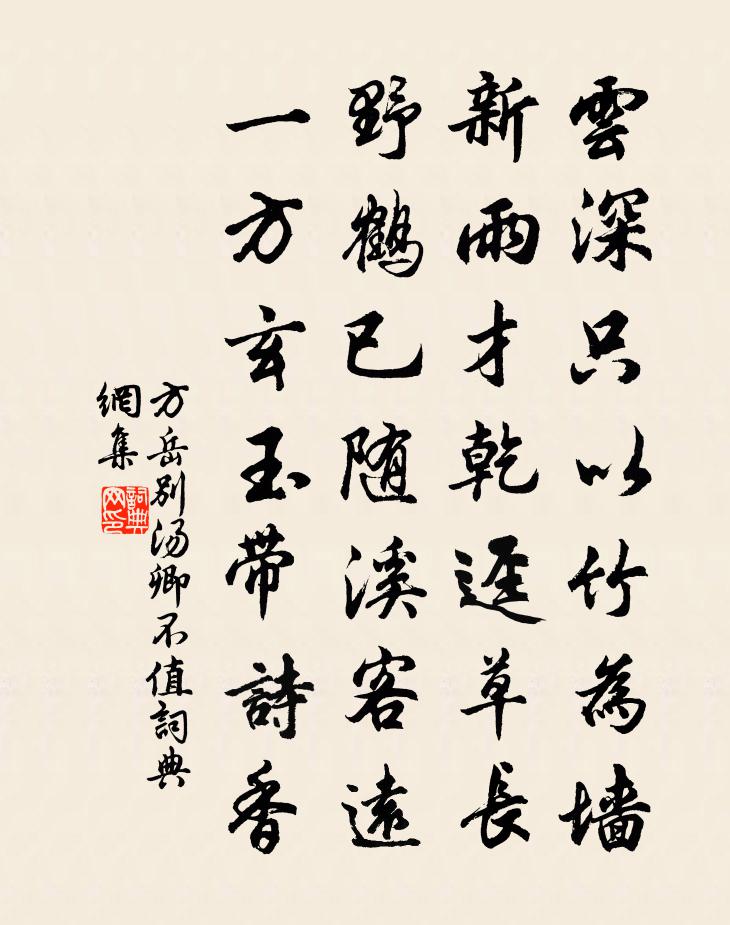 雲深只以竹為墻
新雨才乾逕草長
野鶴已随溪客遠
一方玄玉带詩香
方岳别汤卿不值詞典
網集
詞典
网印